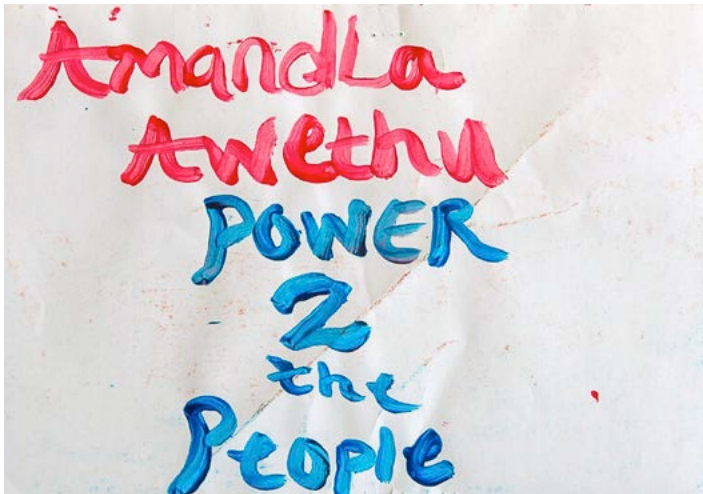 AmandLa
Awethu
POWER
2
the
People